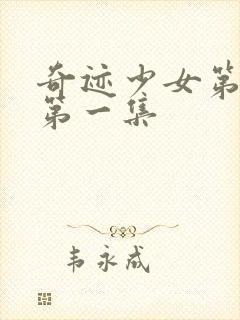 奇迹少女第
第一集
韦永成